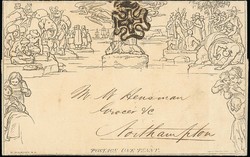 Mr W Hensman
Grocer &c
Northampton
POSTAGE ONE PENNY.